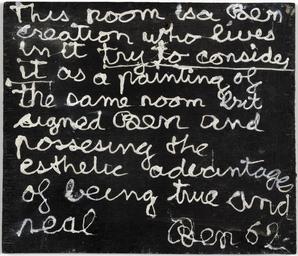 this room is a Ben
creation who lives
in it try to consider
it as a painting of
the same room but
signed Ben and
possesing the
esthetic advantage
of being true and
real Ben 62